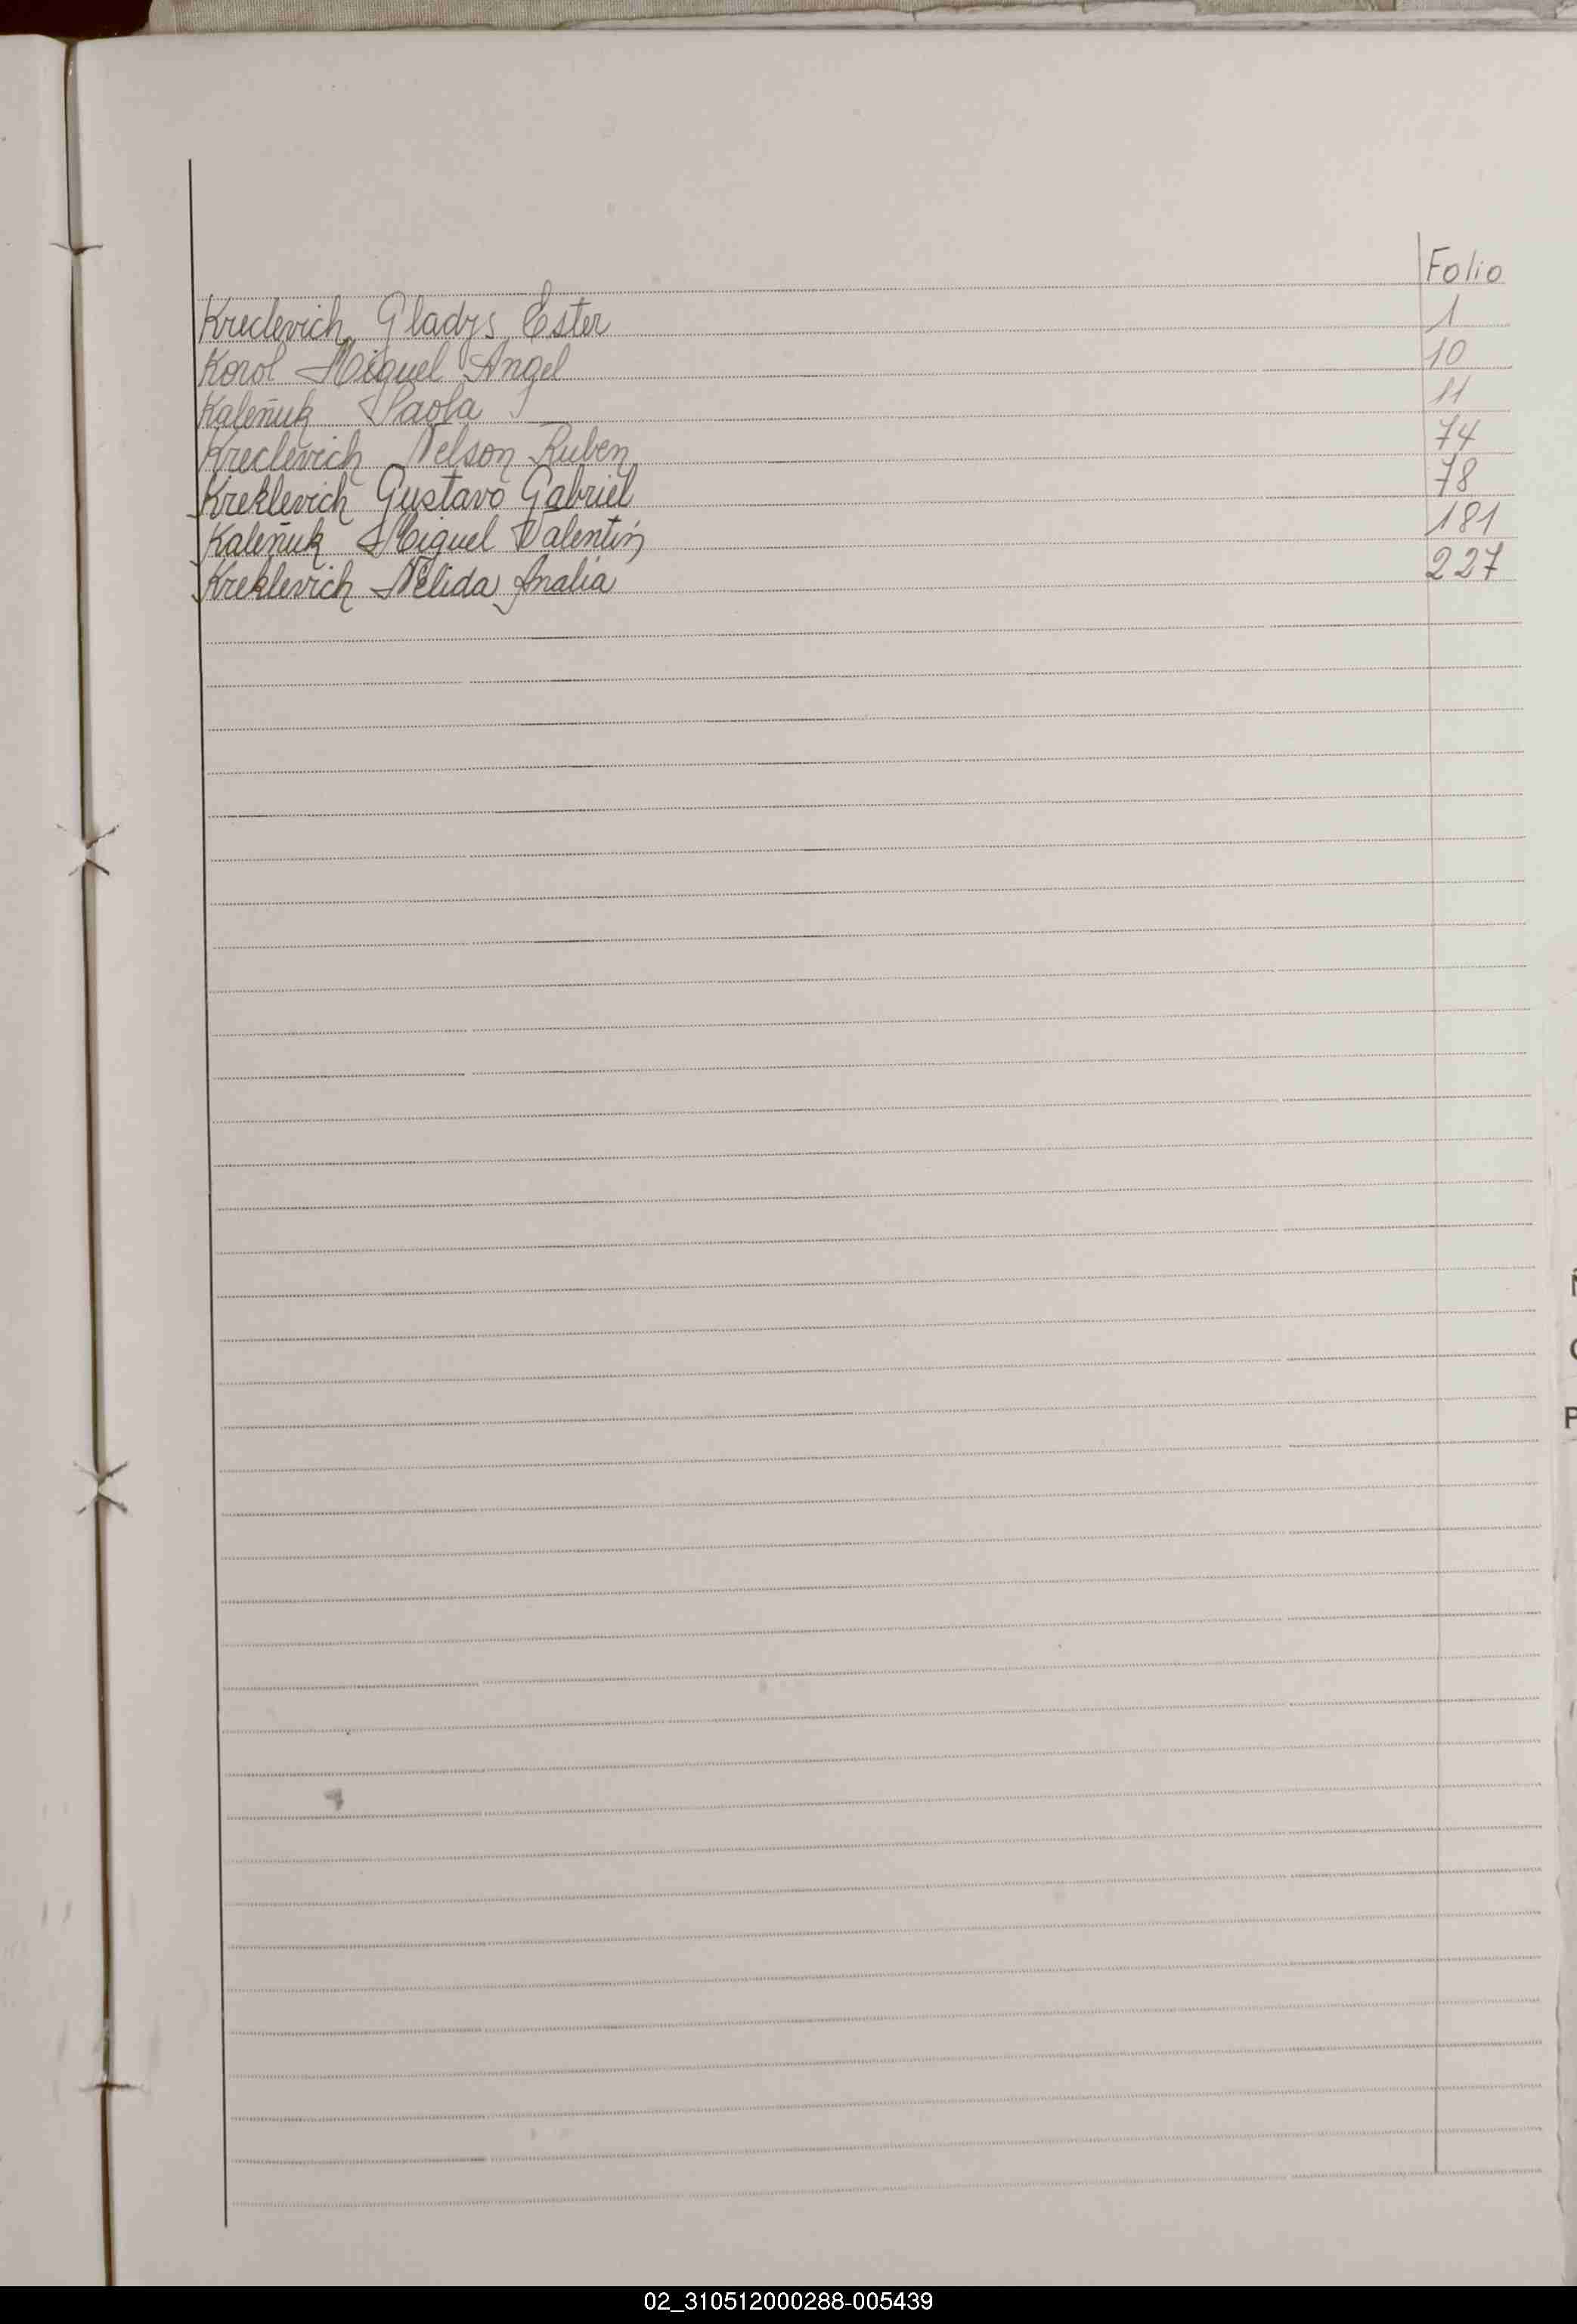 Folio
Kreclevich, Gladys Ester 1
Korol Miguel Angel 10
Kaleñuk Paola 11
Kreclevich Nelson Ruben 74
Kreklevich Gustavo Gabriel 78
Kaleñuk Miguel Valentín 181
Kreklevich Nélida Analia 227
02_310512000288-005439